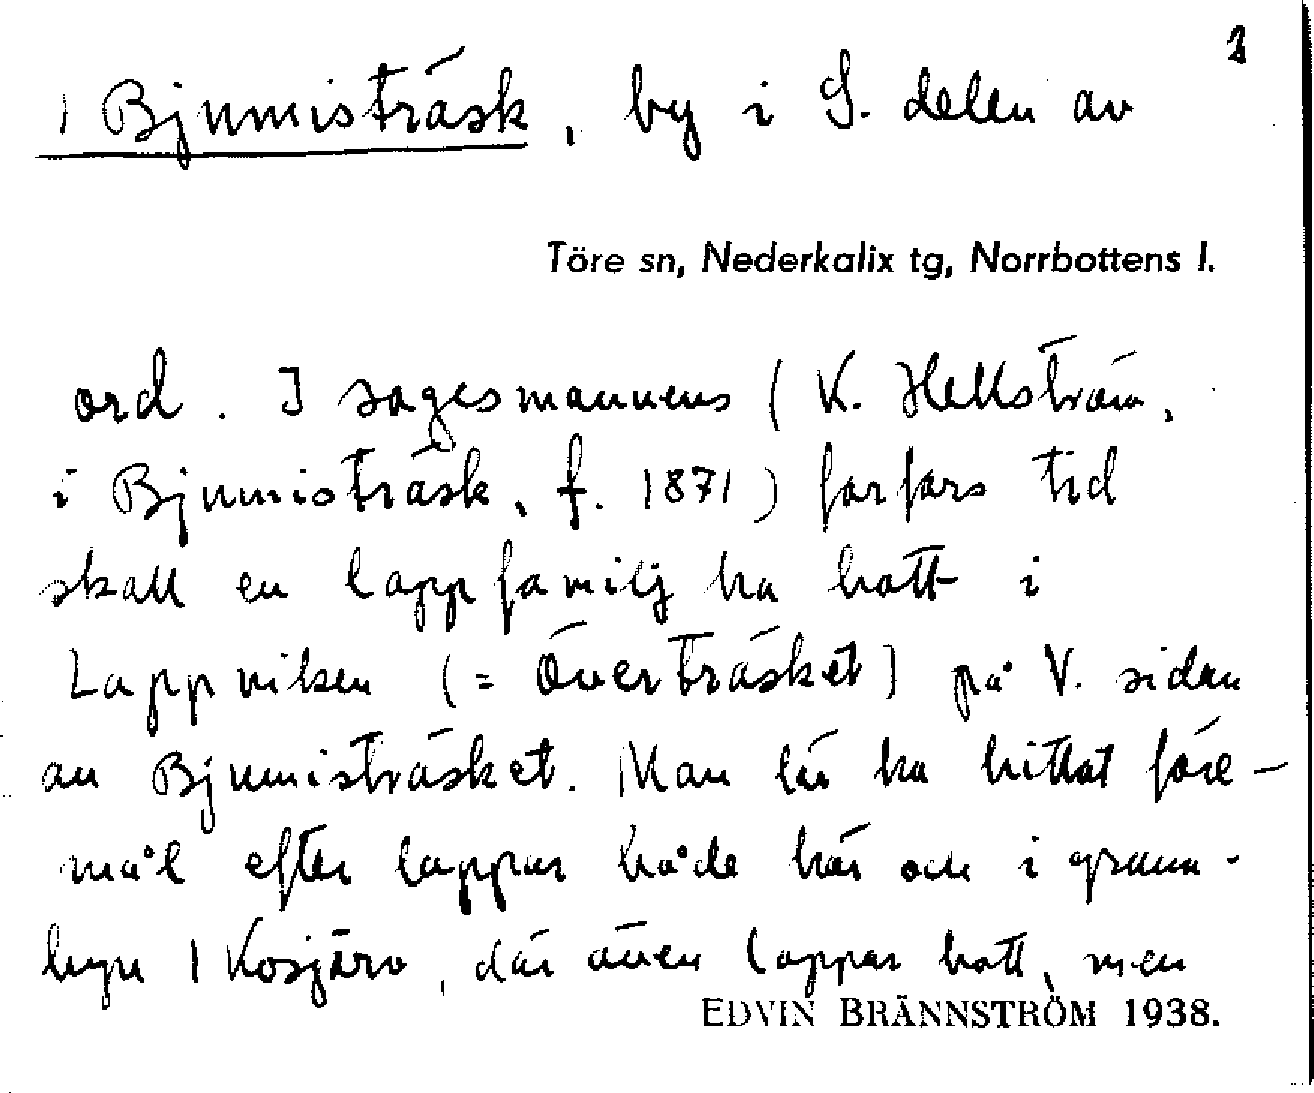 3
| Bjumisträsk, by i S. delen av
Töre sn, Nederkalix tg, Norrbottens l.
ord. I sagesmannens (K. Hellström,
i Bjumisträsk, f. 1871) farfars tid
skall en lappfamilj ha bott i
Lappviken (= Överträsket) på V. sidan
av Bjumisträsket. Man lär ha hittat före-
mål efter lappar både här och i grann-
byn | Kosjärv, där även lappar bott, men
EDVIN BRÄNNSTRÖM 1938.